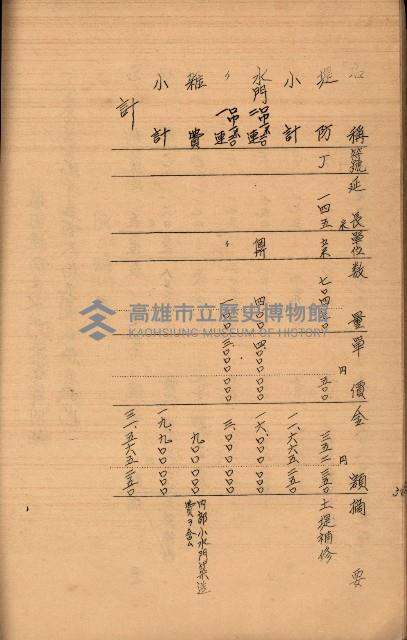 名稱 符號 延長 單位 數量 單價 金額 摘要
米 円 円
堤防 丁 一四五 立米 七〇四〇〇 五〇〇 三五二〇〇〇 土堤補修
小計 一一六六五二五〇
水門 二連 個所 四〇〇 四〇〇〇〇〇 一六〇〇〇〇〇
〃 一連 〃 一〇〇 三〇〇〇〇〇 三〇〇〇〇〇
雜費 九〇〇〇〇 內部小水門築造費ヲ含ム
小計 一九九〇〇〇〇
計 三一五六五二五〇
高雄市立歷史博物館
KAOHSIUNG MUSEUM OF HISTORY